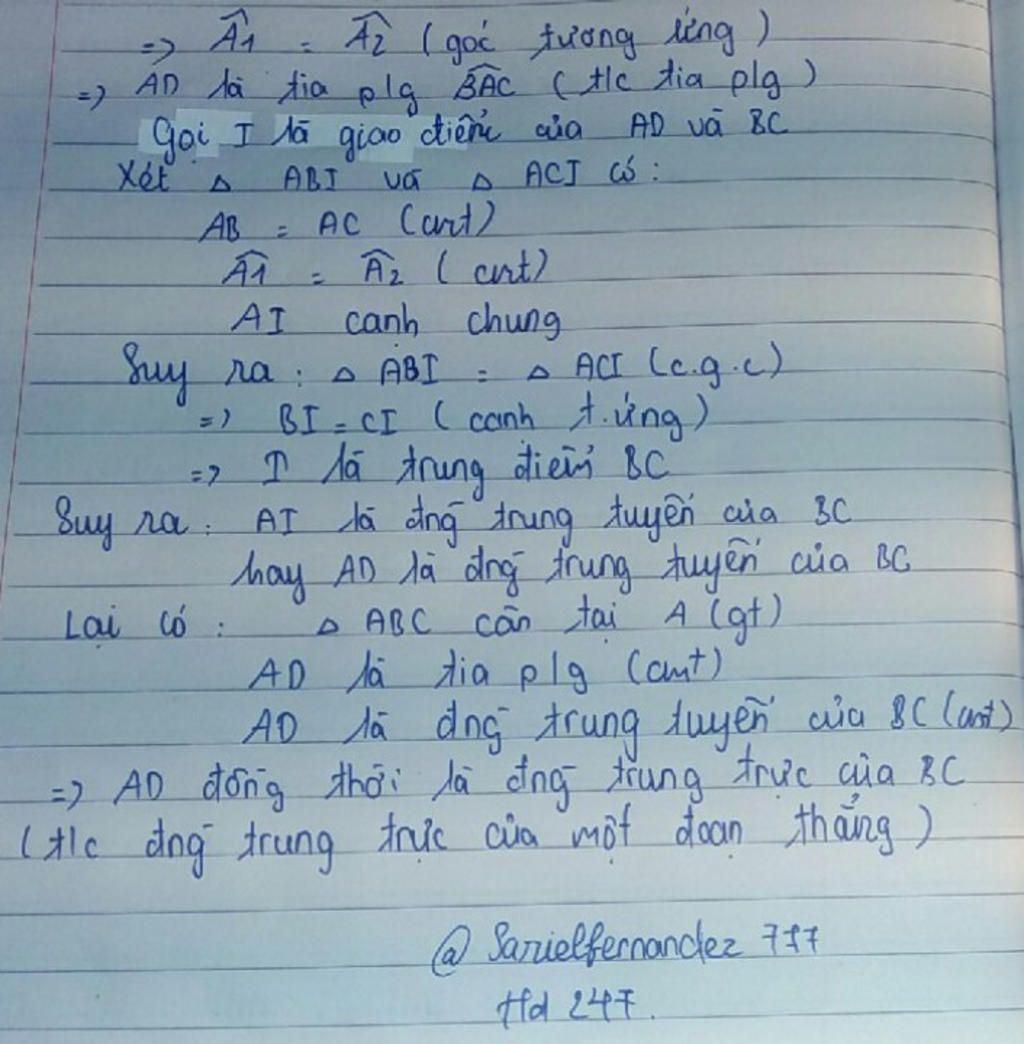 => Â1 = Â2 (góc tương ứng)
=> AD là tia plg BÂC (t/c tia plg)
Gọi I là giao điểm của AD và BC
Xét Δ ABI và Δ ACI có:
AB = AC (cmt)
Â1 = Â2 (cmt)
AI cạnh chung
Suy ra: Δ ABI = Δ ACI (c.g.c)
=> BI = CI (cạnh t.ứng)
=> I là trung điểm BC
Suy ra: AI là đng trung tuyến của BC
hay AD là đng trung tuyến của BC
Lại có: Δ ABC cân tại A (gt)
AD là tia plg (cmt)
AD là đng trung tuyến của BC (cmt)
=> AD đồng thời là đng trung trực của BC
(t/c đng trung trực của một đoạn thẳng)
@ Sarielfernandez 717
Hd 247.